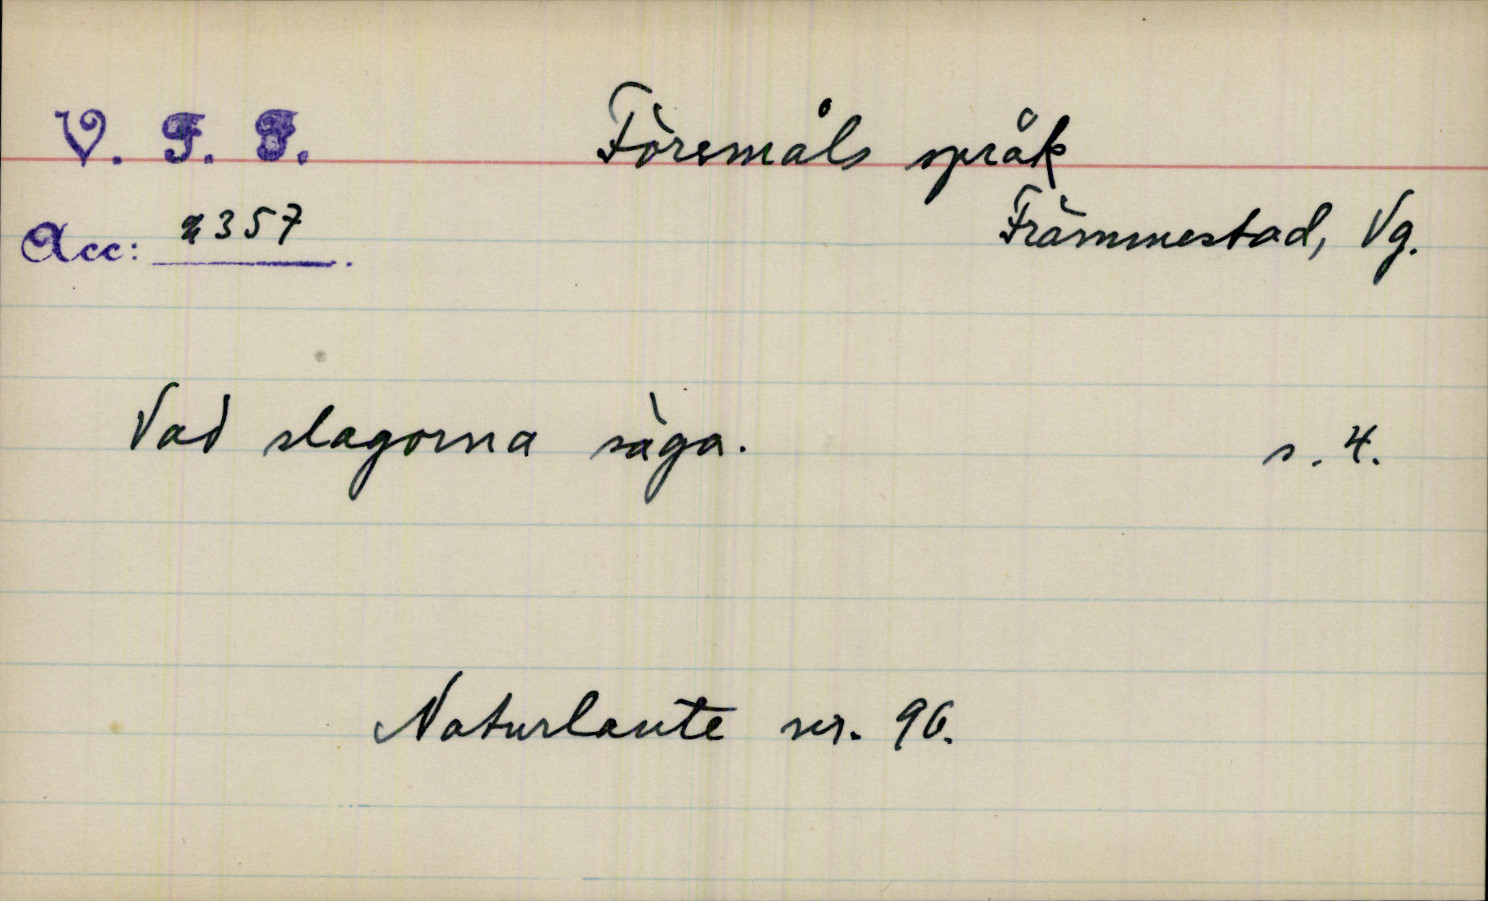 V. F. F.
Föremåls språk
Acc: 2357.
Främmestad, Vg.
Vad slagorna säga. s. 4.
Naturlaute nr. 96.